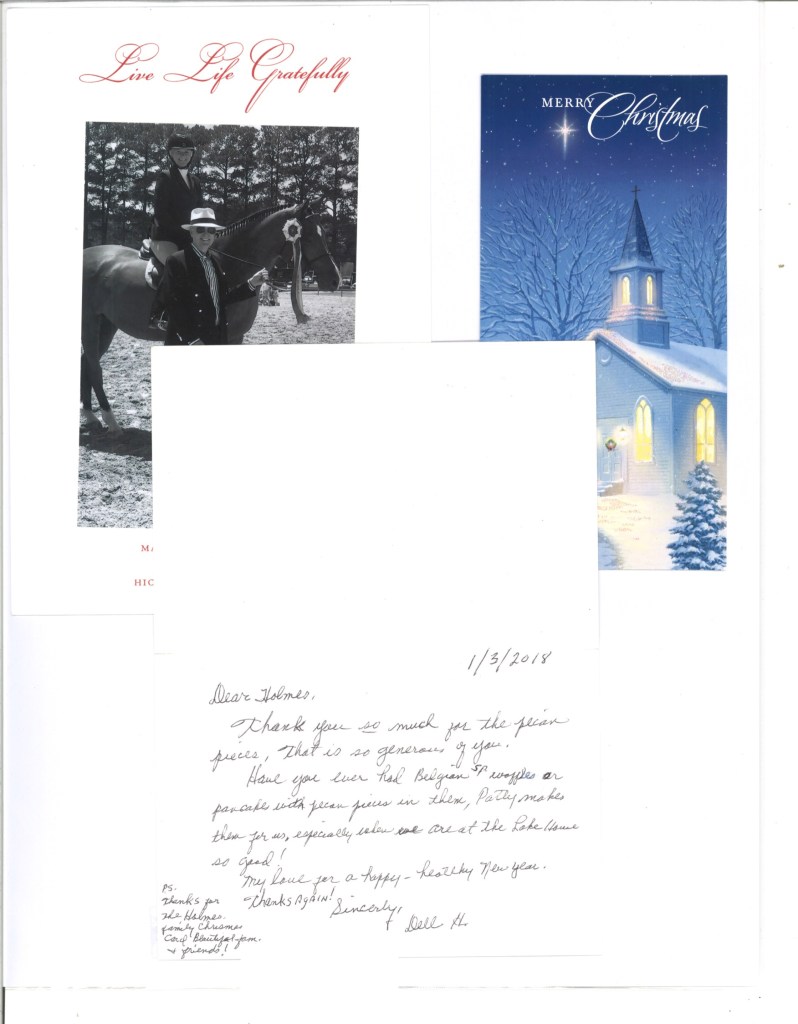 Live Life Gratefully
MERRY Christmas
MA
HIC
1/3/2018
Dear Holmes,
Thank you so much for the pecan
pieces, That is so generous of you.
Have you ever had Belgian sp waffles or
pancake with pecan pieces in them, Patty makes
them for us, especially when we are at the Lake House
so good!
My love for a happy - healthy New Year.
Thanks AgAIN!
Sincerly,
Dell H.
PS.
Thanks for
the Holmes
family Chrismas
Card Beautiful fam.
+ friends!